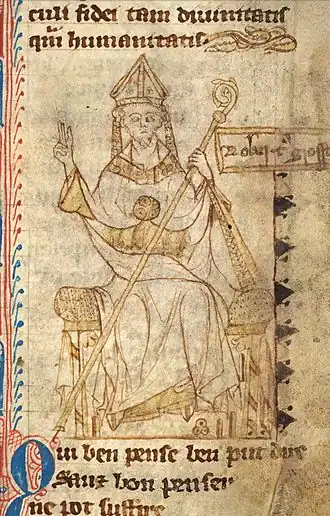 culi fidei tam diuinitatis
qm̄ humanitatis.
Robert Gross
Qui ben pense ben put dire
Sanz bon penser
ne pot suffire